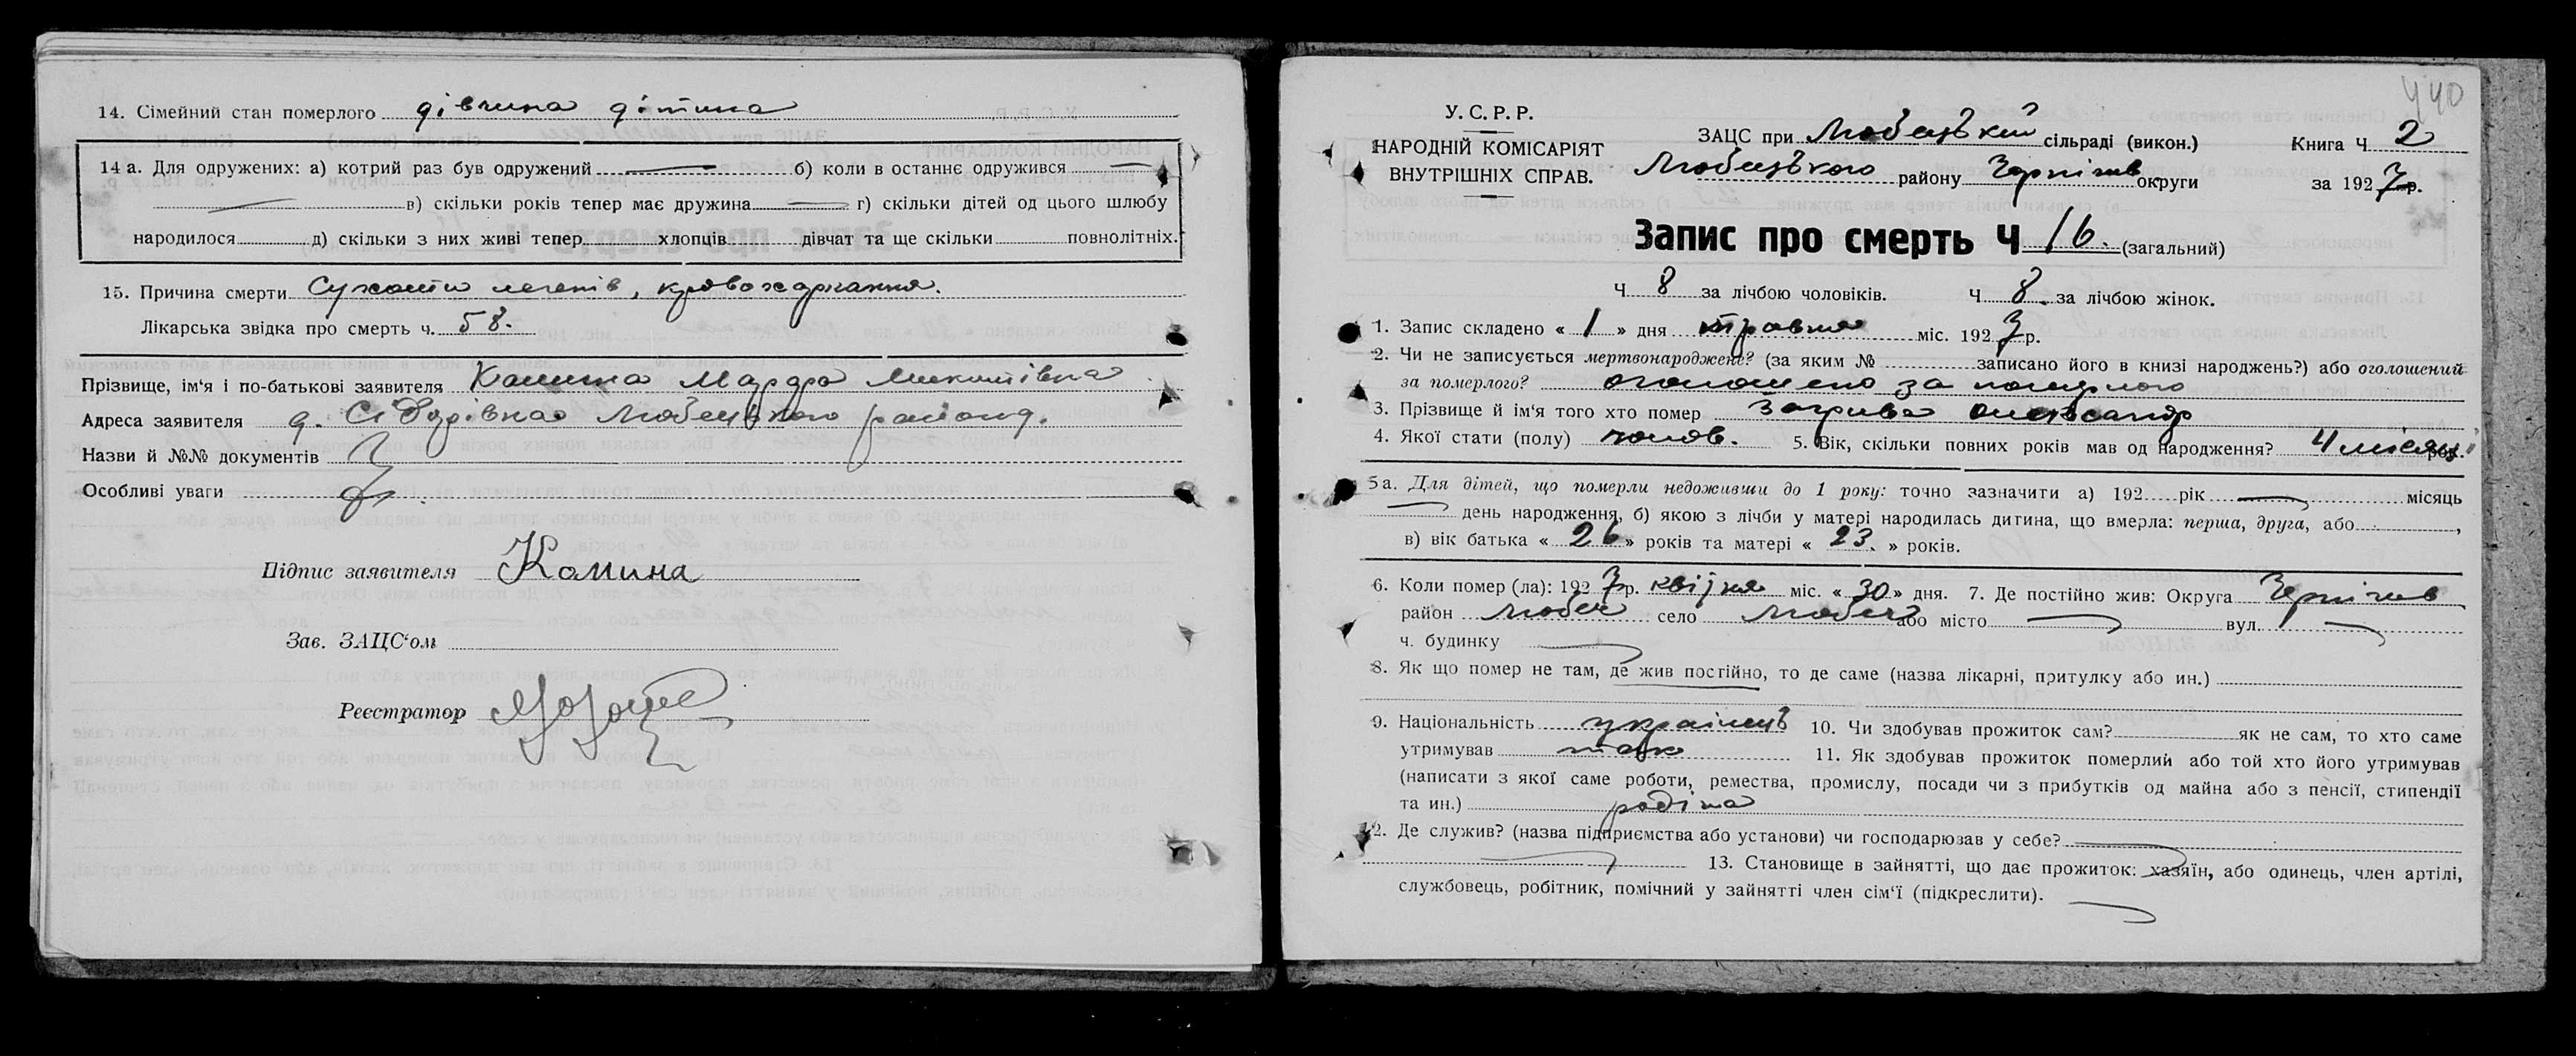 14. Сімейний стан померлого дівчина дітина
14 а. Для одружених: а) котрий раз був одружений б) коли в останнє одружився
в) скільки років тепер має дружина г) скільки дітей од цього шлюбу
народилося д) скільки з них живі тепер хлопців дівчат та ще скільки повнолітніх.
15. Причина смерти Сухоти легенів, кровохаркання.
Лікарська звідка про смерть ч. 58.
Прізвище, ім'я і по-батькові заявителя
Адреса заявителя Любецького району.
Назви й №№ документів
Особливі уваги
Підпис заявителя Калина
Зав. ЗАЦС'ом
Реєстратор
440
У. С. Р. Р.
НАРОДНІЙ КОМІСАРІЯТ
ВНУТРІШНІХ СПРАВ.
ЗАЦС при Любецькій сільраді (викон.) Книга Ч 2
Любецького району Чернігів округи за 1927 р.
Запис про смерть Ч 16. (загальний)
Ч 8 за лічбою чоловіків. Ч 8. за лічбою жінок.
1. Запис складено « 1 » дня травня міс. 1927 р.
2. Чи не записується мертвонароджене? (за яким № записано його в книзі народжень?) або оголошений
за померлого? оголошено за померлого
3. Прізвище й ім'я того хто помер Олександр
4. Якої стати (полу) чолов. 5. Вік, скільки повних років мав од народження? 4 місяці рок.
5а. Для дітей, що померли недоживши до 1 року: точно зазначити а) 192 рік місяць
день народження, б) якою з лічби у матері народилась дитина, що вмерла: перша, друга, або ,
в) вік батька « 26 » років та матері « 23. » років.
6. Коли помер (ла): 1927 р. квітня міс. « 30 » дня. 7. Де постійно жив: Округа Чернігів
район Любеч село Любеч або місто вул.
ч. будинку
8. Як що помер не там, де жив постійно, то де саме (назва лікарні, притулку або ин.)
9. Національність українець 10. Чи здобував прожиток сам? як не сам, то хто саме
утримував 11. Як здобував прожиток померлий або той хто його утримував
(написати з якої саме роботи, ремества, промислу, посади чи з прибутків од майна або з пенсії, стипендії
та ин.)
12. Де служив? (назва підприємства або установи) чи господарював у себе?
13. Становище в зайнятті, що дає прожиток: хазяїн, або одинець, член артілі,
службовець, робітник, помічний у зайнятті член сім'ї (підкреслити).